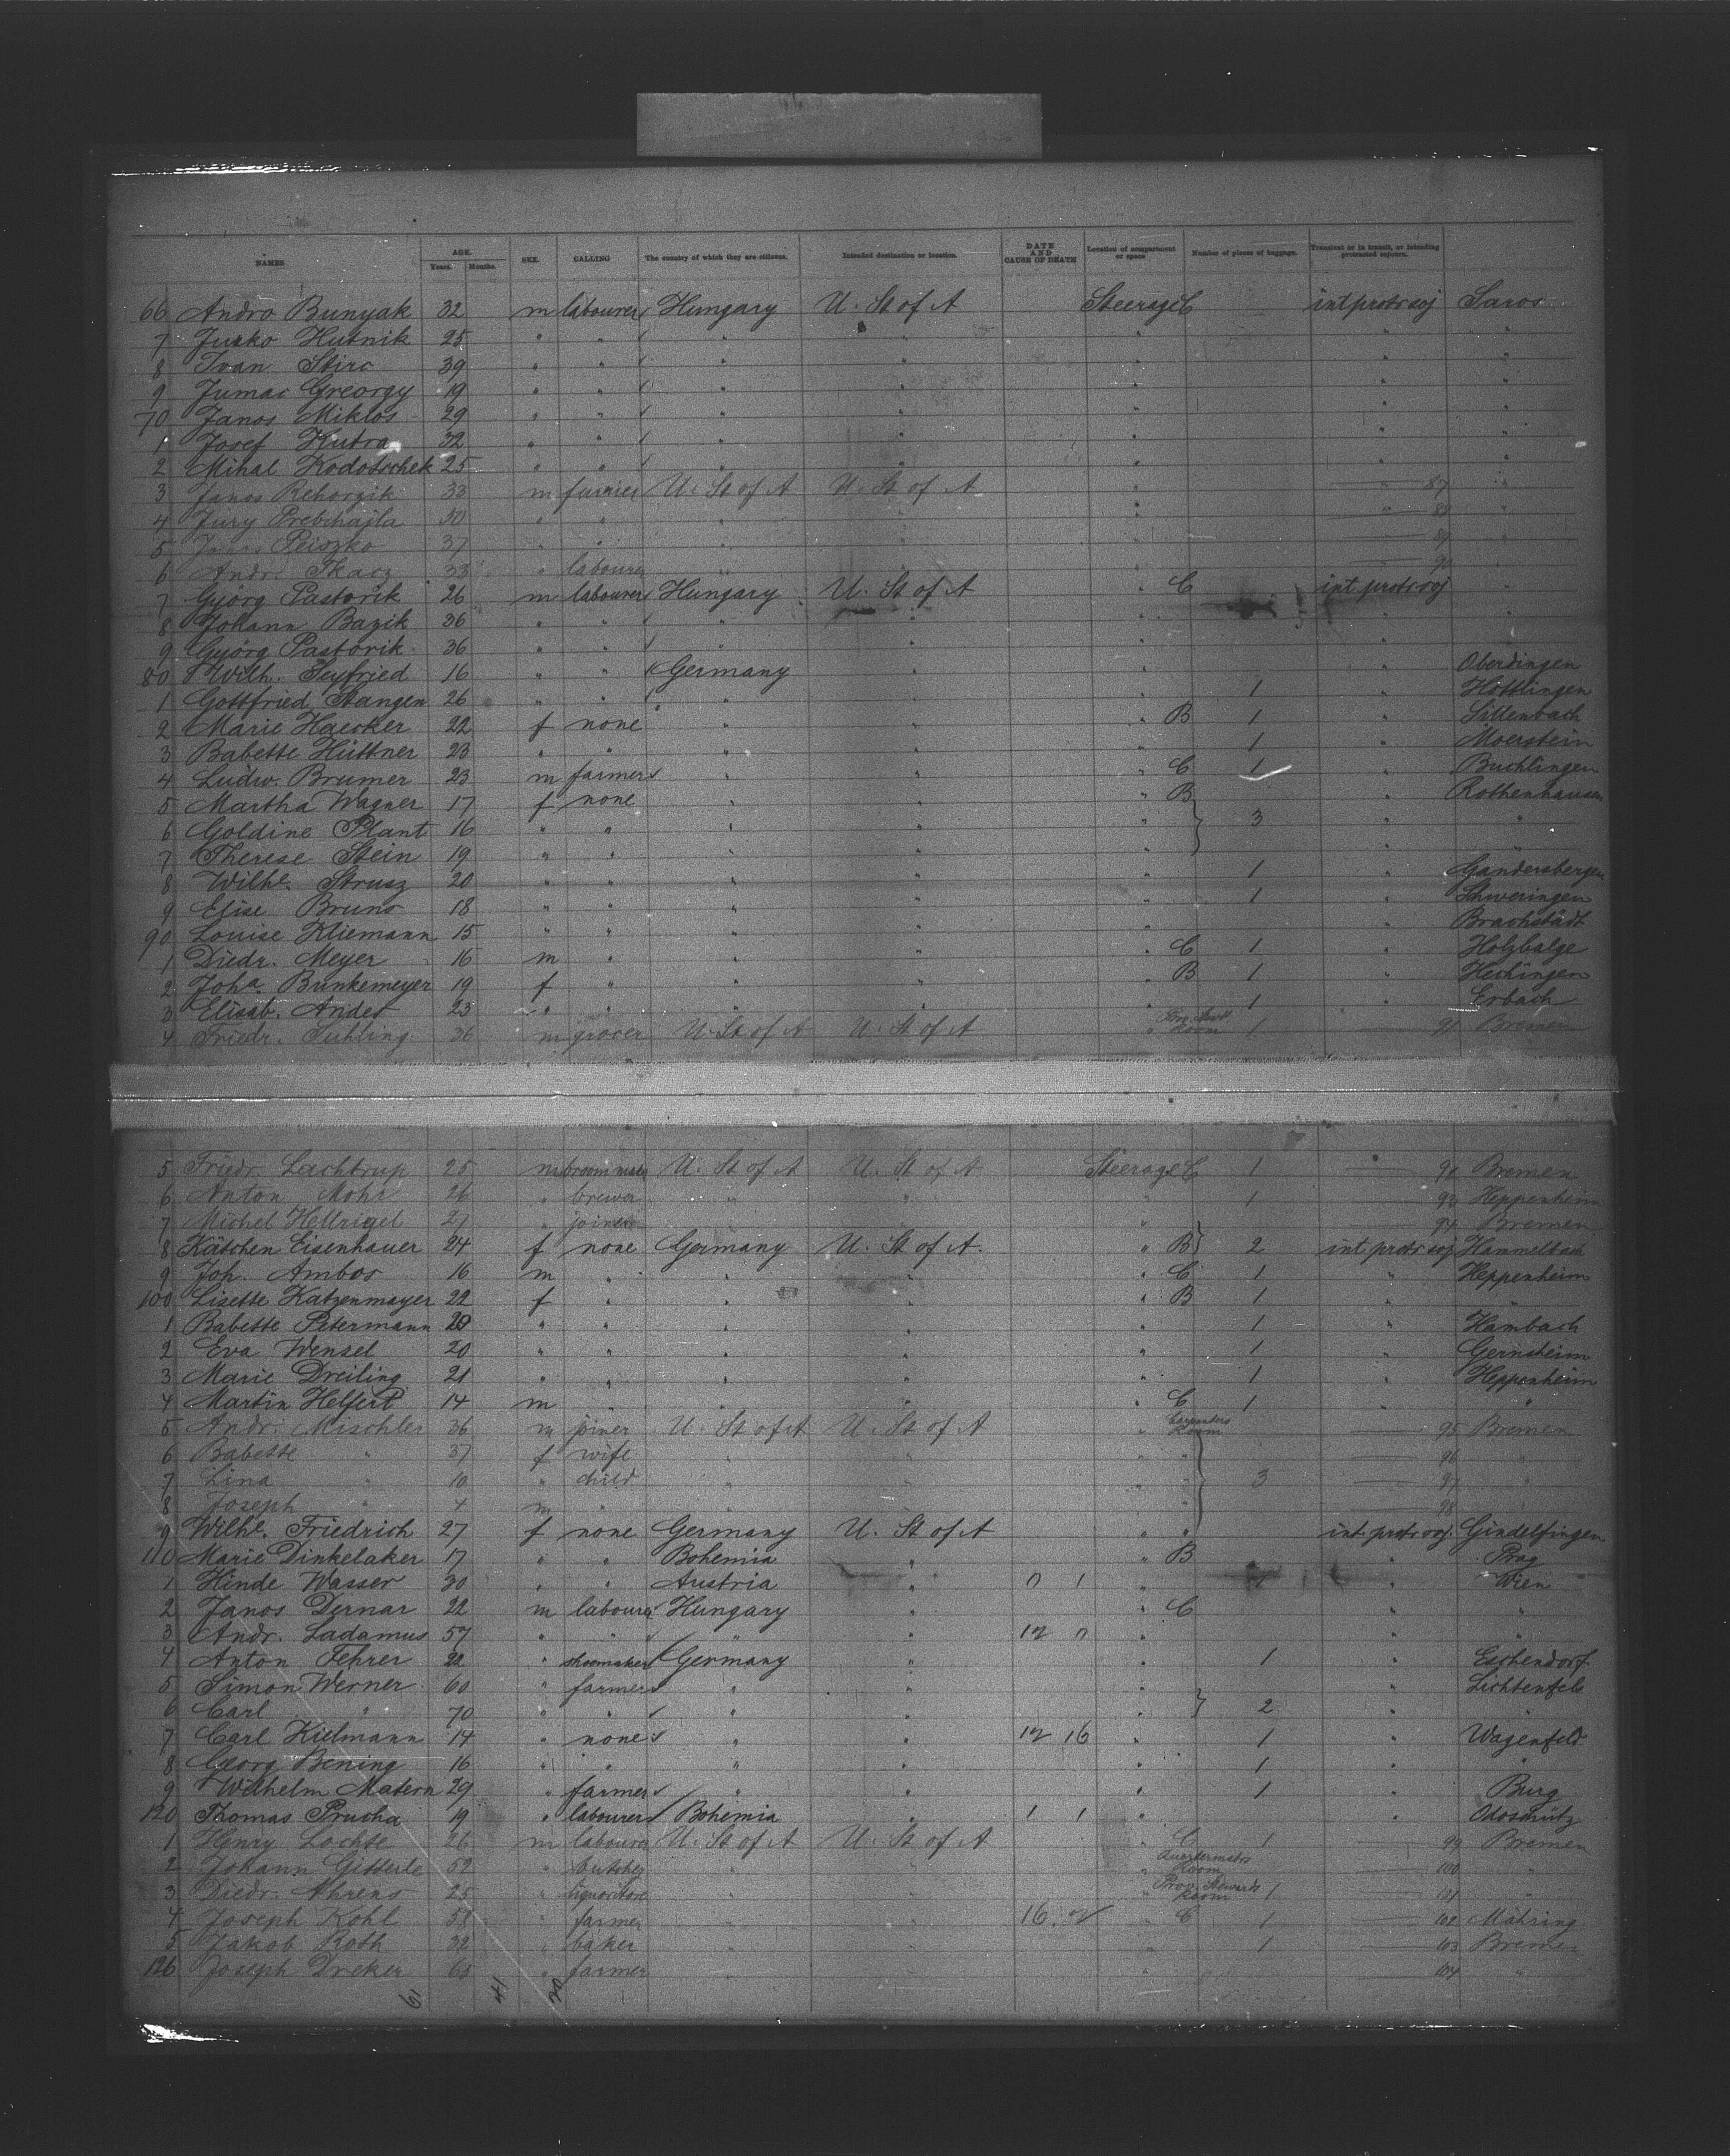 NAMES AGE. Years. Months. SEX. CALLING The country of which they are citizens. Intended destination or location. DATE AND CAUSE OF DEATH Location of compartment or space Number of pieces of baggage. Transient or in transit, or intending protracted sojourn.
66 Andro Bunyak 32 m labourer Hungary U. St of A Steerage C int protr soj Saros
7 Jurko Hutnik 25 " " " " " " "
8 Ivan Stirc 39 " " " " " " "
9 Jumac Greorgy 19 " " " " " " "
70 Janos Miklos 29 " " " " " " "
1 Josef Kutra 32 " " " " " " "
2 Mihal Kodotschek 25 " " " " " " "
3 Janos Rehorzik 33 m furrier U. St of A U. St of A " " 87 "
4 Jury Prebihajla 30 " " " " " " 88 "
5 Peiszko 37 " " " " " 89
6 Andr. Tkacz 33 " labourer " " " 90
7 Györg Pastorik 26 m labourer Hungary U. St of A " C int protr soj "
8 Johann Bazik 36 " " " " " " "
9 Györg Pastorik 36 " " " " " " "
80 Wilh. Seyfried 16 " " Germany " " " Oberdingen
1 Gottfried Stangen 26 " " " " " 1 " Höttlingen
2 Marie Haecker 22 f none " " " B 1 " Sittenbach
3 Babette Hüttner 23 " " " " " 1 " Moerstein
4 Ludw. Brumer 23 m farmer " " " C 1 " Buchlingen
5 Martha Wagner 17 f none " " " B Rothenhausen
6 Goldine Plant 16 " " " " " 3 " "
7 Therese Stein 19 " " " " " " "
8 Wilhe. Strusz 20 " " " " " 1 " Gandersbergen
9 Elise Bruns 18 " " " " " 1 " Schweringen
90 Louise Kliemann 15 " " " " " " Brachstädt
1 Diedr. Meyer 16 m " " " " C 1 " Holzbalge
2 Joha. Bunkemeyer 19 f " " " " B 1 " Hechingen
3 Elisab. Andes 23 " " " " " 1 " Erbach
4 Friedr. Suhling 36 m grocer U. St of A U. St of A " Room 1 91 Bremen
5 Friedr. Lachtrup 25 m U. St of A U. St of A Steerage C 1 Bremen
6 Anton Mohr 26 " brewer " " " 1 93 Heppenheim
7 Michel Hellrigel 27 " joiner " 94 Bremen
8 Kätchen Eisenhauer 24 f none Germany U. St of A. " B 2 int protr soj Hammelbach
9 Joh. Ambos 16 m " " " " C 1 " Heppenheim
100 Lisette Katzenmayer 22 f " " " " B 1 " "
1 Babette Petermann 20 " " " " " 1 " Hambach
2 Eva Wensel 20 " " " " " 1 " Gernsheim
3 Marie Dreiling 21 " " " " " 1 " Heppenheim
4 Martin Helfert 14 m " " " " C 1 " "
5 Andr. Mischler 36 m joiner U. St of A U. St of A " Carpenters Room 95 Bremen
6 Babette " 37 f wife " " " " 96 "
7 Lina " 10 " child " " " " 3 97 "
8 Joseph " 4 m " " " " " 98 "
9 Wilhe. Friedrich 27 f none Germany U. St of A " " int protr soj. Gindelfingen
110 Marie Dinkelaker 17 " " Bohemia " " B " Prag
1 Hinde Wasser 30 " " Austria " 0 1 " 1 " Wien
2 Janos Dernar 22 m labourer Hungary " " C " "
3 Andr. Ladamus 57 " " " " 12 0 " " "
4 Anton Fehrer 22 " shoemaker Germany " " 1 " Eschendorf
5 Simon Werner 60 " farmer " " " " Lichtenfels
6 Carl " 70 " " " " " 2 " "
7 Carl Kielmann 14 " none " " 12 16 " 1 " Wagenfeld
8 Georg Bening 16 " " " " " 1 " "
9 Wilhelm Matern 29 " farmer " " " 1 " Burg
120 Thomas Prucha 19 " labourer Bohemia " 1 1 " " Odoschütz
1 Henry Lochte 26 m labourer U. St of A U. St of A " C 1 99 Bremen
2 Johann Gitterle 52 " butcher " " " Quartermstrs Room 100 "
3 Diedr. Ahrens 25 " liquorstore " " " Prov. Stewards Room 1 101 "
4 Joseph Kohl 58 " farmer " " 16 2 " C 1 102 Mähring
5 Jakob Roth 32 " baker " " " 1 103 Bremen
126 Joseph Dreker 65 " farmer " " " 104 "
61 41 20